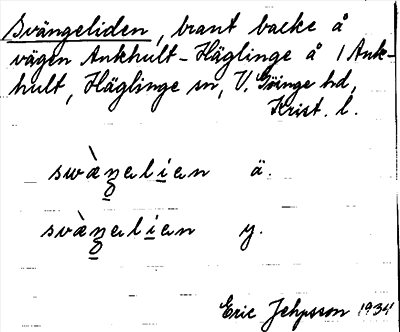 Svängeliden, brant backe å
vägen Ankhult-Häglinge å 1 Ank-
hult, Häglinge sn, V. Göinge hd,
Krist. l.
swàŋəlian ä.
svàŋəlian y.
Eric Jehpsson 1934